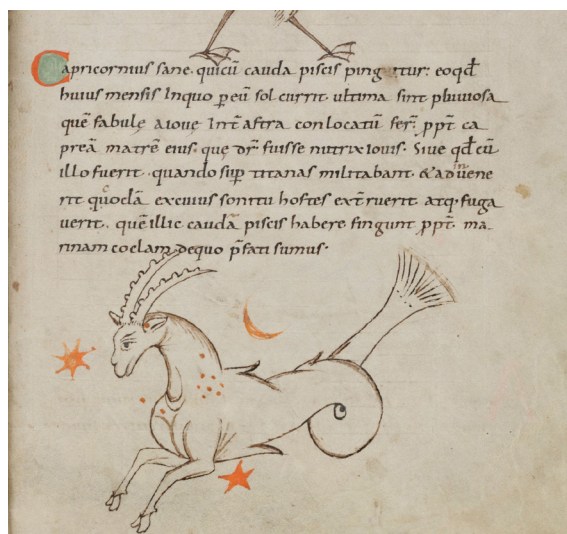 Capricornus sane. qui cū cauda piscis pingitur: eo qđ
huius mensis In quo p eū sol currit. ultima sint pluuiosa
quē fabulę a ioue Int̄ astra conlocatū fer̄. ꝓpt̄ ca
preā matrē eius. quę dr̄ fuisse nutrix iouis. Siue qđ cū
illo fuerit. quando sup̄ titanas militabant. & ad uene
rit quodā ex cuius sonitu hostes ext̄ruerit atq; fuga
uerit. quē illic caudā piscis habere fingunt ꝓpt̄. ma
rinam coclam de quo p̄fati sumus.